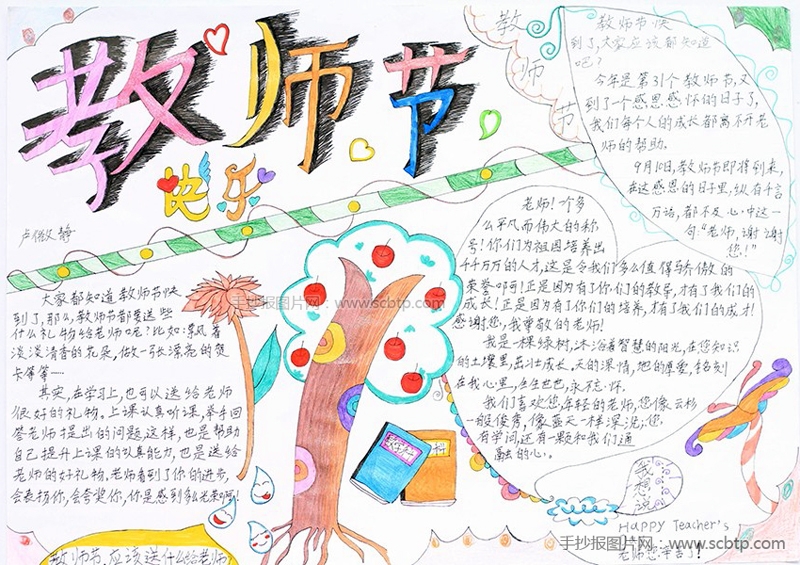 教师节
快乐
教
师
节
教师节快
到了,大家应该都知道
吧?
今年是第31个教师节,又
到了一个感恩感怀的日子了,
我们每个人的成长都离不开老
师的帮助。
9月10日,教师节即将到来,
在这感恩的日子里,纵有千言
万语,都不及心中这一
句:“老师,谢谢
您!”
老师!一个多
么平凡而伟大的称
号!你们为祖国培养出
千千万万的人才,这是令我们多么值得骄傲的
荣誉啊!正是因为有了你们的教导,才有了我们的
成长!正是因为有了你们的培养,才有了我们的成才!
感谢您,我尊敬的老师!
我是一棵绿树,沐浴着智慧的阳光,在您知识
的土壤里茁壮成长。天的深情,地的厚爱,铭刻
在我心里,生生世世,永不忘怀。
我们喜欢您,年轻的老师,您像云杉
一般俊秀,像蓝天一样深沉;您
有学问,还有一颗和我们通
融的心。
大家都知道教师节快
到了,那么,教师节都要送些
什么礼物给老师呢?比如:飘着
淡淡清香的花朵,做一张漂亮的贺
卡等等……
其实,在学习上,也可以送给老师
很好的礼物。上课认真听课,举手回
答老师提出的问题,这样,也是帮助
自己提升上课的认真能力,也是送给
老师的好礼物。老师看到了你的进步,
会表扬你,会夸奖你,你是感到多么光荣啊!
我
想
说
Happy Teacher's
老师您辛苦了!
教师节,应该送什么给老师?
手抄报图片网:www.scbtp.com
手抄报图片网:www.scbtp.com